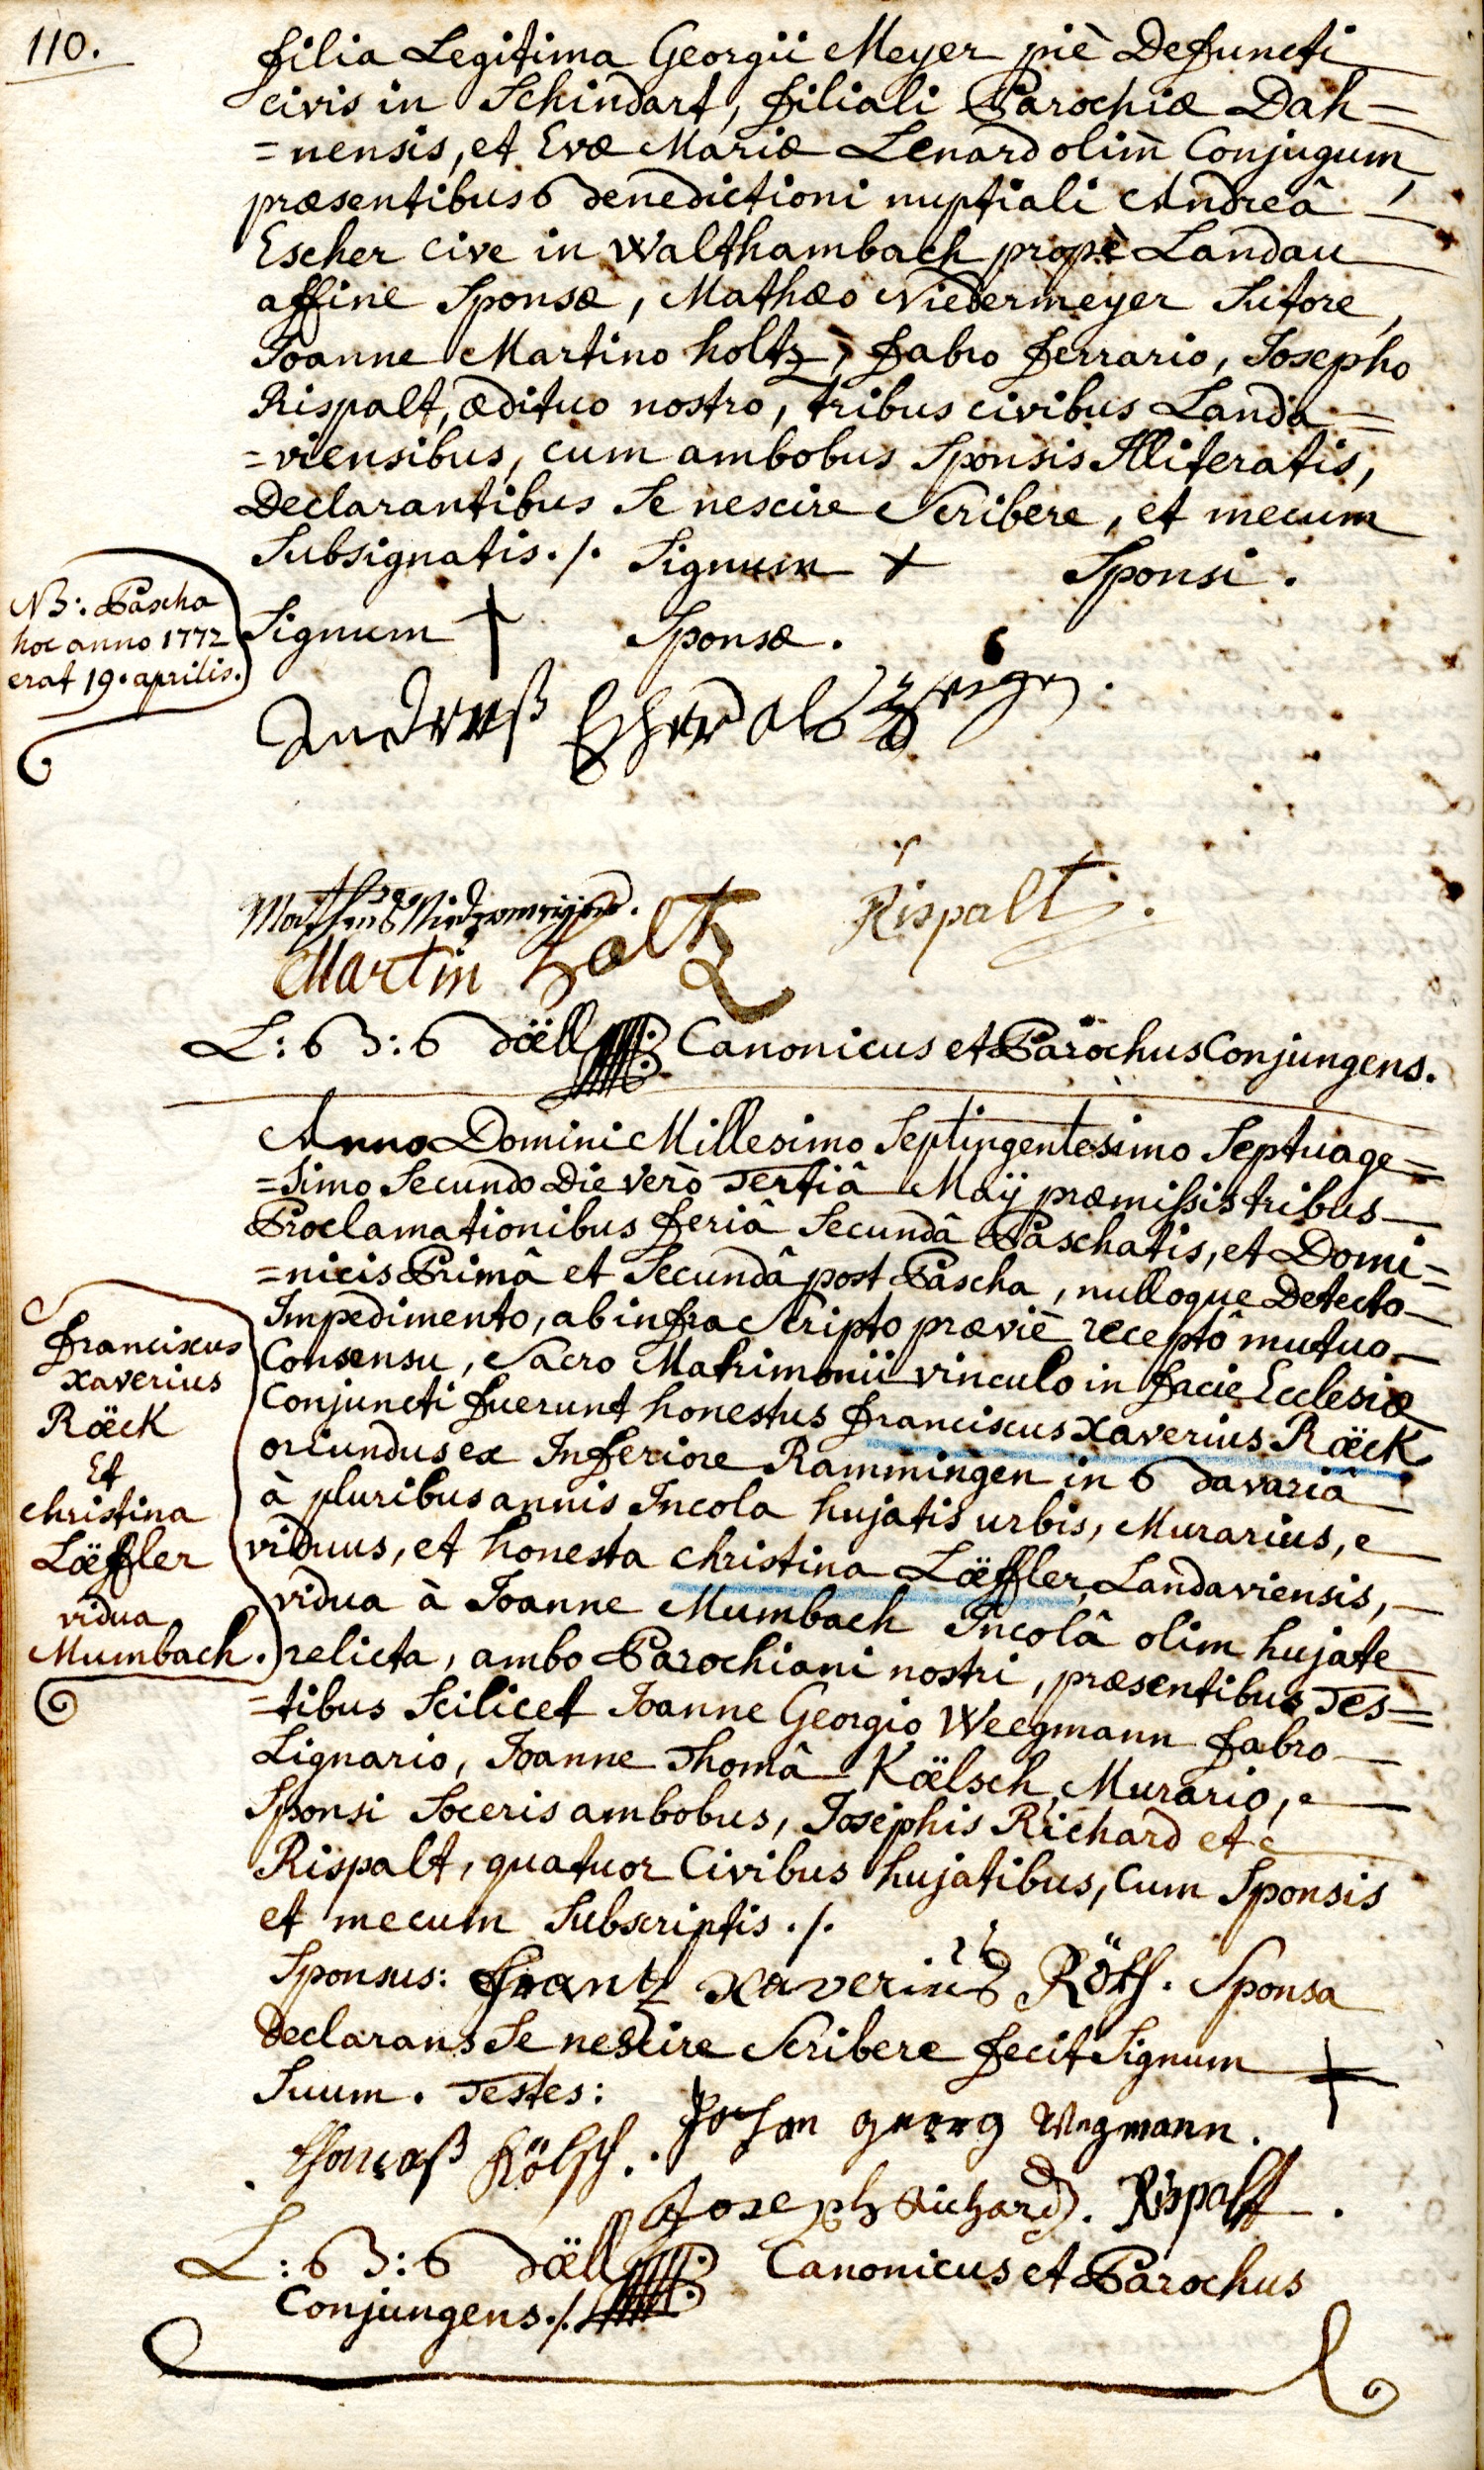 110.
filia Legitima Georgii Meyer piè Defuncti
civis in Schindart, filiali Parochiæ Dah=
=nensis, et Evæ Mariæ Lenard olim̃ Conjugum,
præsentibus Benedictioni nuptiali Andreâ —
Escher cive in Walthambach propè Landau
affine Sponsæ, Mathæo Niedermeyer Sutore,
Joanne Martino holtz, fabro ferrario, Josepho
Rispalt, ædituo nostro, tribus civibus Landa=
=viensibus, cum ambobus Sponsis Illiteratis,
Declarantibus Se nescire Scribere, et mecum
Subsignatis ./. Signum + Sponsi.
Signum † Sponsæ.
NB: Pascha
hoc anno 1772
erat 19. aprilis.
Andreaß Escher als Zeigen.
Matheus Niedermeyer.
Rispalt.
Martin Holtz
L: B: Böell Canonicus et Parochus Conjungens.
Anno Domini Millesimo Septingentesimo Septuage=
=simo Secundo Die verò Tertiâ Maÿ præmissis tribus —
Proclamationibus feriâ Secundâ Paschatis, et Domi=
=nicis Primâ et Secundâ post Pascha, nulloque Detecto —
Impedimento, ab infra Scripto præviè receptô mutuo —
Consensu, Sacro Matrimonii vinculo in facie Ecclesiæ
Conjuncti fuerunt honestus franciscus Xaverius Röeck
oriundus ex Inferiore Rammingen in Bavariâ
à pluribus annis Incola hujatis urbis, Murarius, —
viduus, et honesta christina Löeffler, Landaviensis, —
vidua à Joanne Mumbach Incolâ olim hujate
relicta, ambo Parochiani nostri, præsentibus Tes=
=tibus Scilicet Joanne Georgio Weegmann fabro —
Lignario, Joanne Thomâ Köelsch, Murario, —
Sponsi Soceris ambobus, Josephis Richard et
Rispalt, quatuor Civibus hujatibus, Cum Sponsis
et mecum Subscriptis ./.
franciscus
xaverius
Röeck
Et
christina
Löeffler
vidua
Mumbach.
Sponsus: Frantz Xaverius Röth. Sponsa
Declarans Se nescire Scribere fecit Signum †
Suum. Testes:
Johan georg Wegmann.
Thomaß Kölsch.
Joseph Richard. Rispalt.
L: B: Böell Canonicus et Parochus
Conjungens ./.